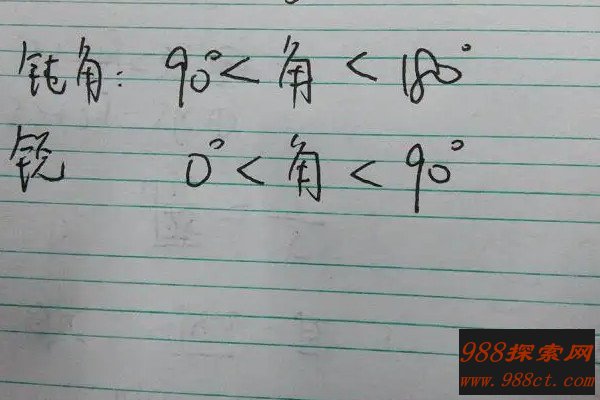 钝角: 90° < 角 < 180°
锐 0° < 角 < 90°
988探索网
www.988ct.com